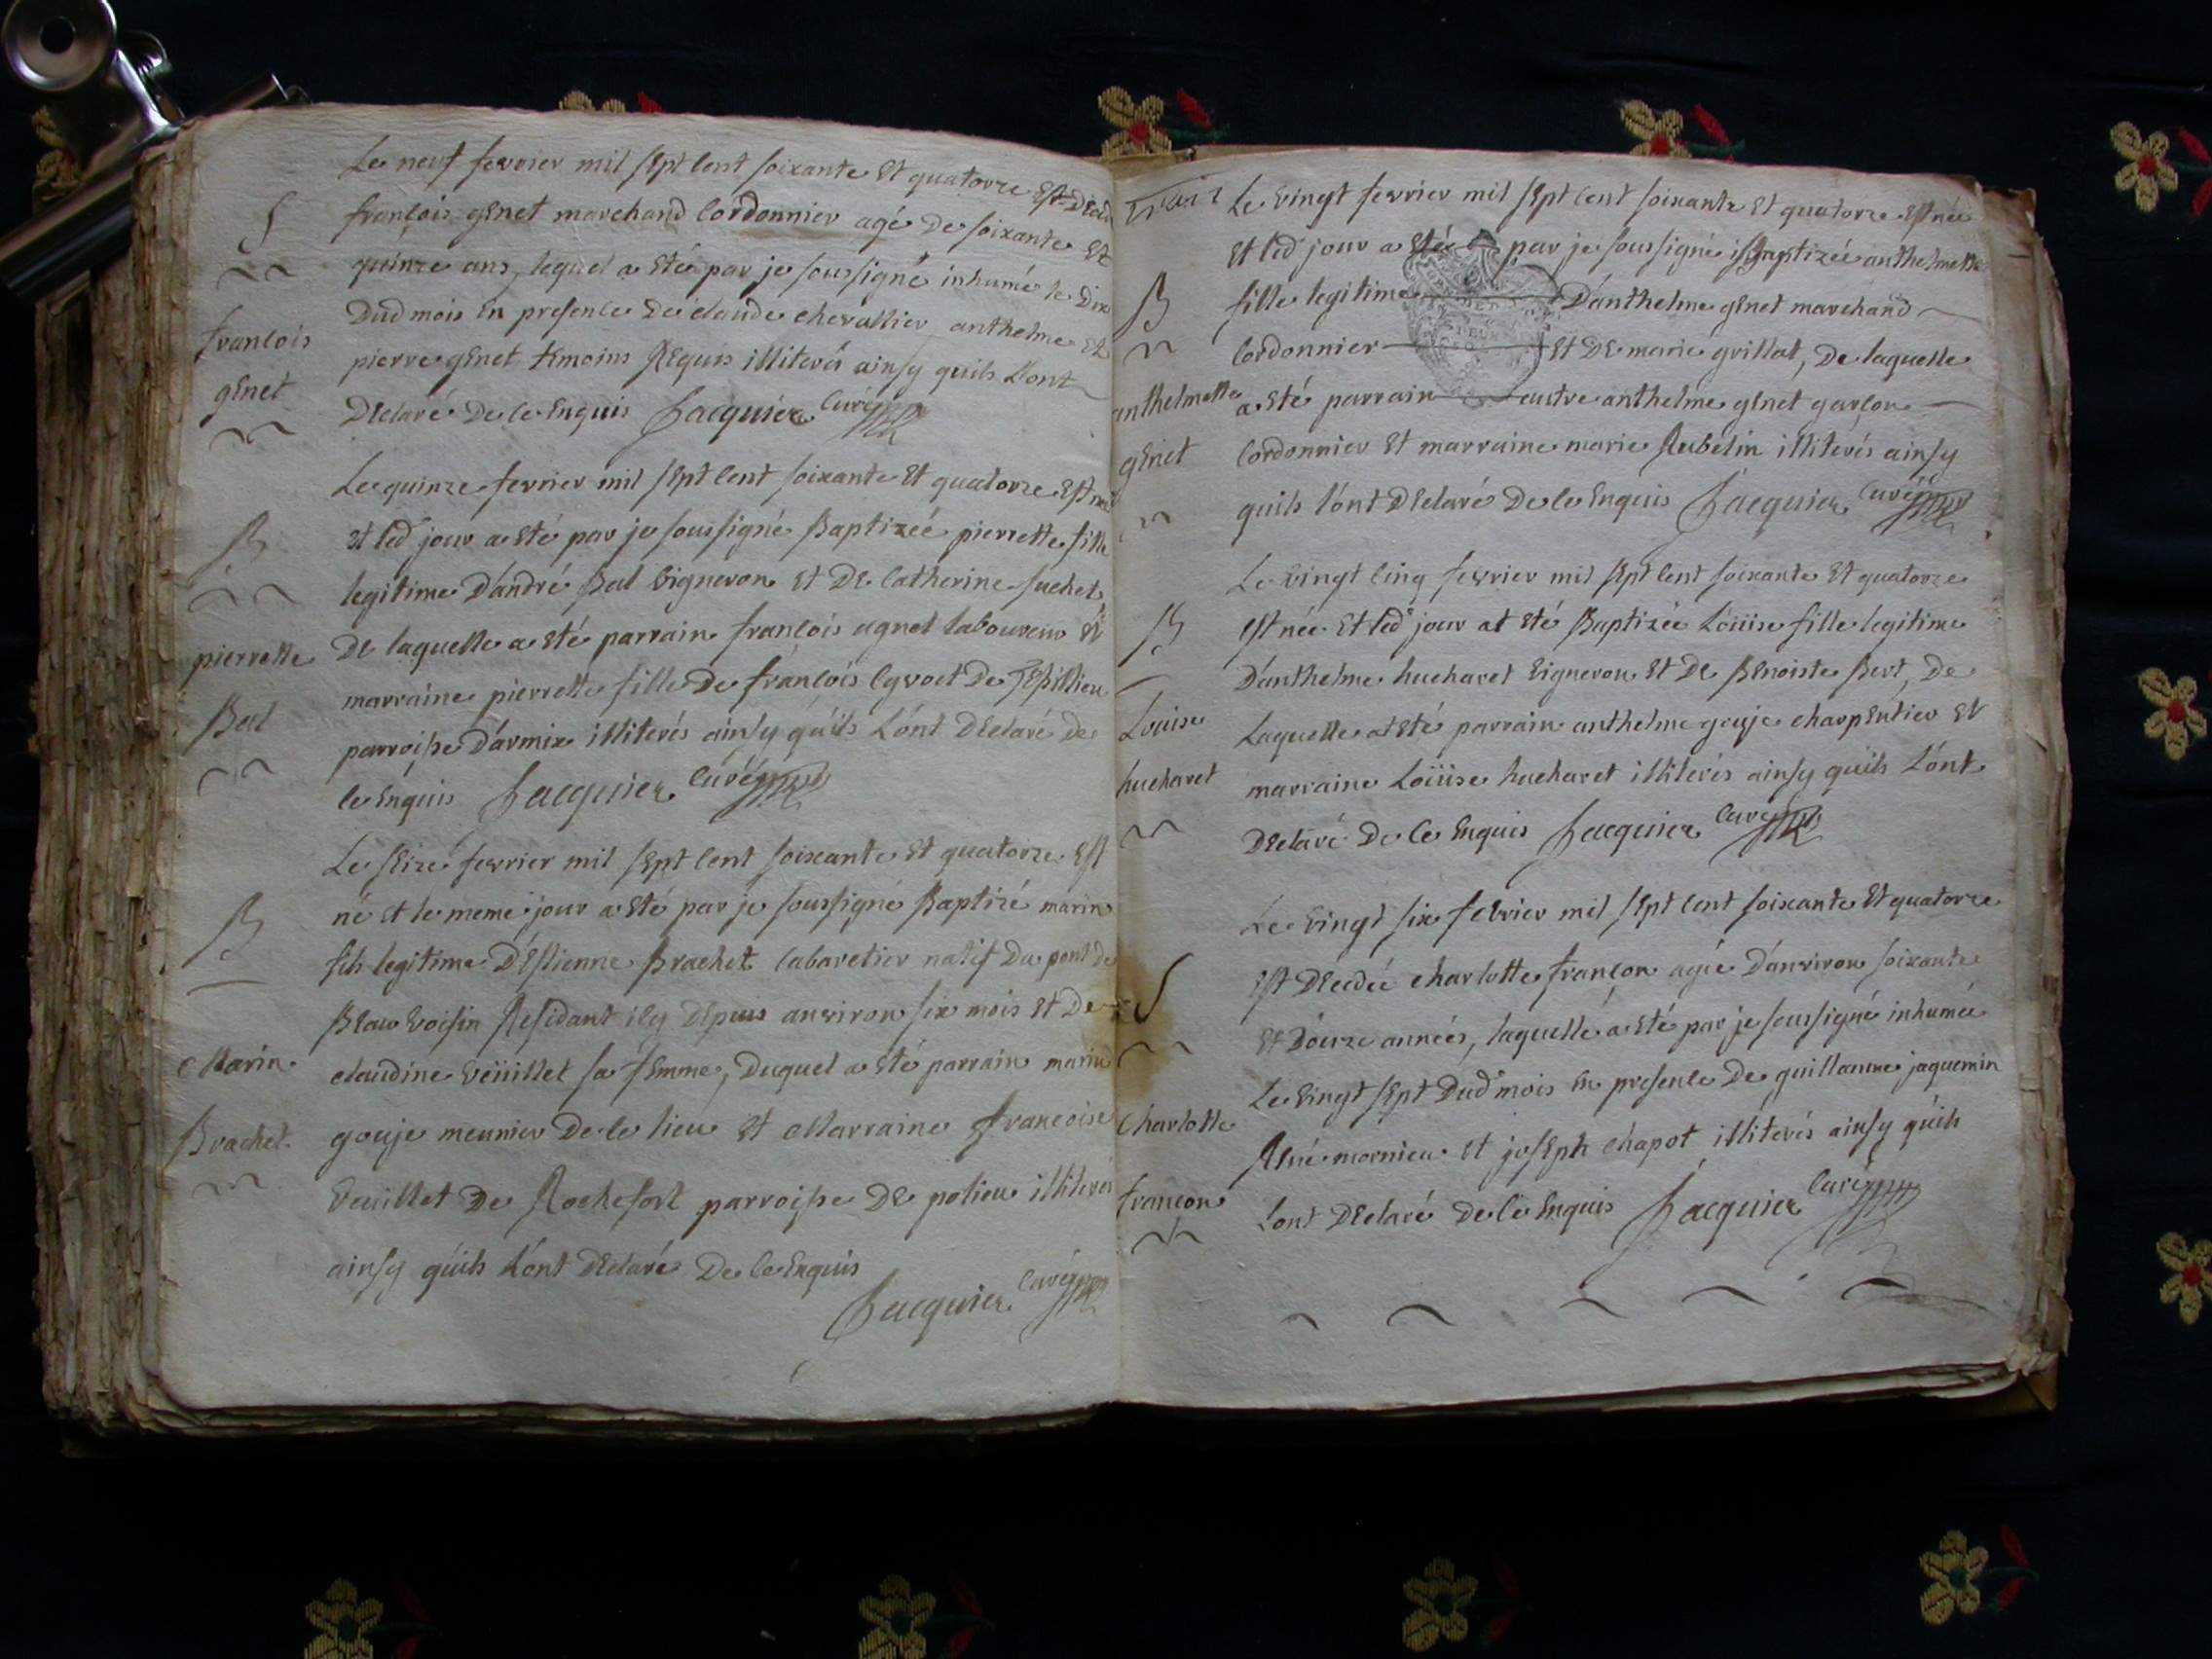 Le neuf fevrier mil sept cent soixante et quatorze est deced
S françois genet marchand cordonnier agé de soixante et
quinze ans, lequel a eté par je soussigné inhumé le dix
françois dud mois en presence de claude chevallier anthelme et
genet pierre genet temoins requis illiterés ainsy quils l'ont
declaré de ce enquis Jacquier curé
Le quinze fevrier mil sept cent soixante et quatorze est née
B et led jour a eté par je soussigné Baptizeé pierrette fille
legitime d'andré Bal vigneron et de Catherine suchet
pierrette de laquelle a eté parrain françois agnel laboureur et
marraine pierrette fille de françois cyvoct de
Bal parroisse d'armix illiterés ainsy qu'ils l'ont declaré de
ce enquis Jacquier curé
Le seize fevrier mil sept cent soixante et quatorze est
B né et le meme jour a eté par je soussigné Baptizé marin
fils legitime d'Estienne Brachet cabaretier natif du pont de
Beauvoisin residant icy depuis anviron six mois et de
Marin claudine veüillet sa femme, duquel a eté parrain marin
Brachet gouje meunier de ce lieu et Marraine francoise
veuillet de Rochefort parroisse de polieu illiterés
ainsy qu'ils l'ont declaré de ce enquis
Jacquier curé
Le vingt fevrier mil sept cent soixante et quatorze est née
et led jour a eté par je soussigné Baptizée anthelmette
B fille legitime d'anthelme genet marchand
cordonnier et de marie grillat, de laquelle
anthelmette a eté parrain autre anthelme genet garcon
genet cordonnier et marraine marie Rubelin illiterés ainsy
quils l'ont declaré de ce enquis Jacquier curé
Le vingt cinq fevrier mil sept cent soixante et quatorze
B est née et led jour at eté Baptizée Loüise fille legitime
d'anthelme hucharet vigneron et de Benoiste Bert, de
Louise Laquelle at eté parrain anthelme gouje charpentier et
hucharet marraine Loüise hucharet illiterés ainsy qu'ils l'ont
declaré de ce enquis Jacquier curé
Le vingt six fevrier mil sept cent soixante et quatorze
S est decedée charlotte françon agée d'anviron soixante
et douze années, laquelle a eté par je soussigné inhumée
Le vingt sept dud mois en presence de guillaume jaquemin
charlotte René mornieu et joseph chapot illiterés ainsy qu'ils
françon l'ont declaré de ce enquis Jacquier curé